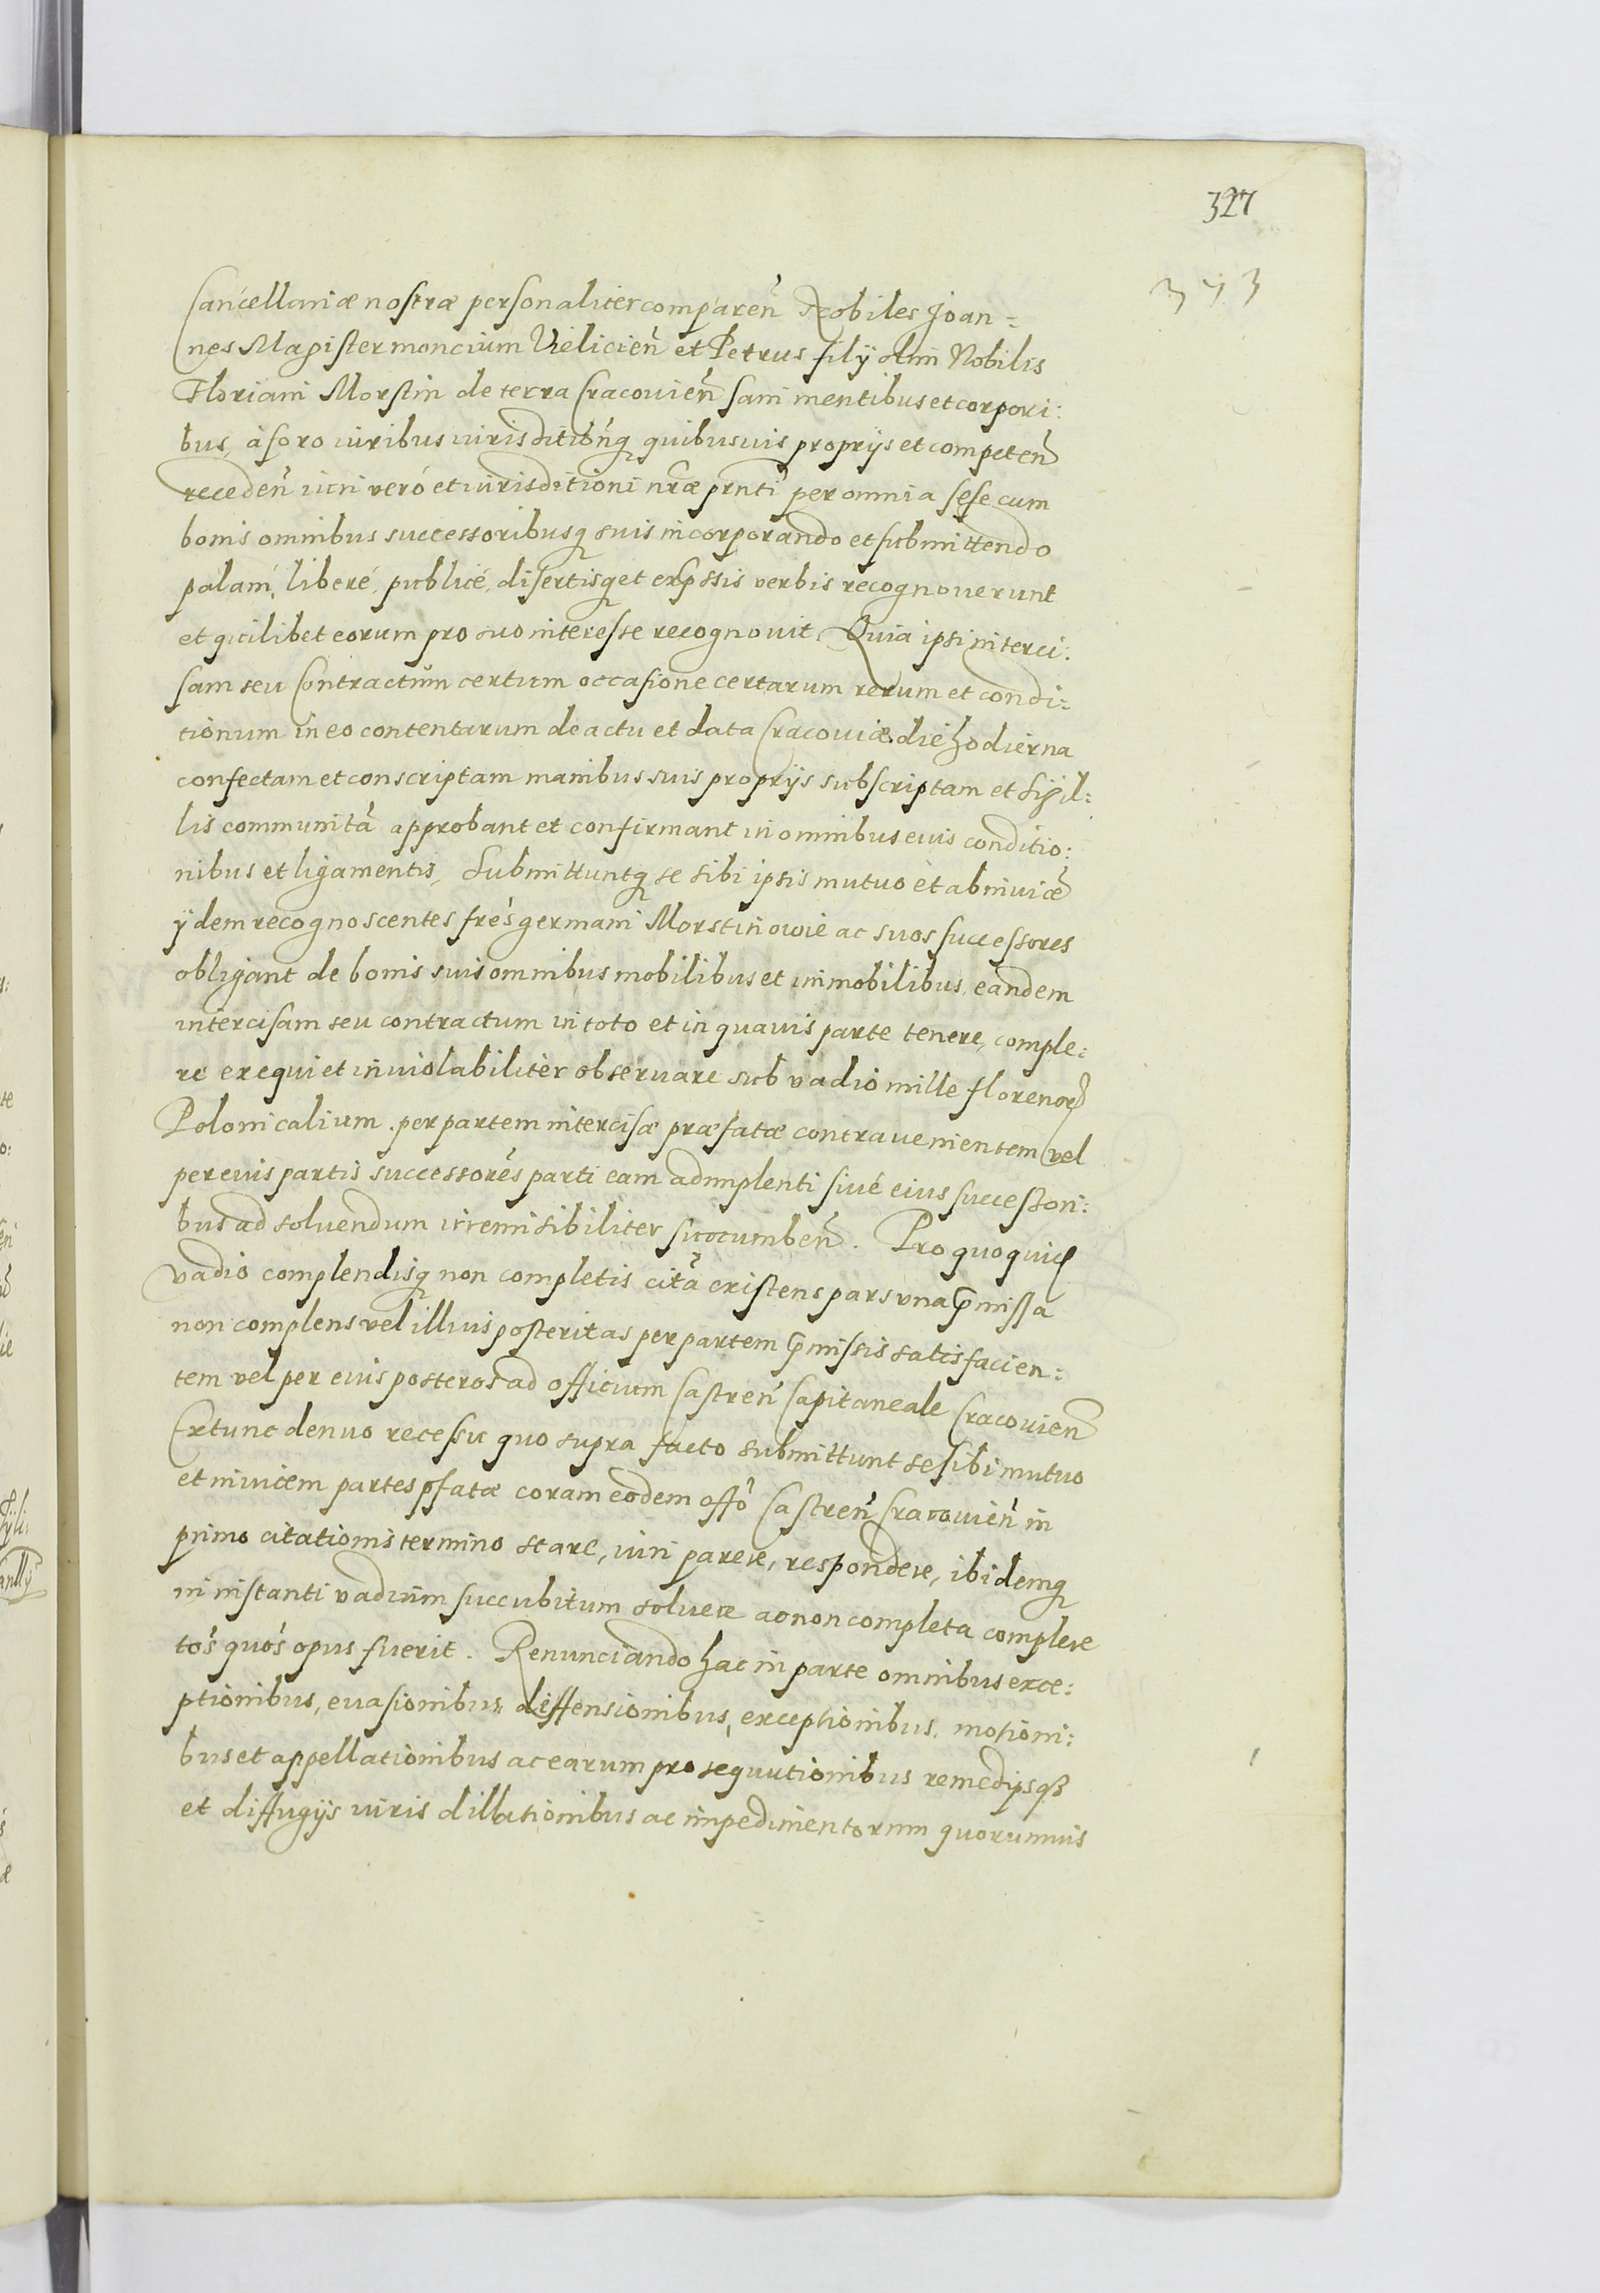 327
343
Cancellariæ nostræ personaliter comparen̄ Nobiles Joan=
nes Magister moncium Vielicien̄ et Petrus filÿ olim Nobilis
Floriani Morstin de terra Cracouien̄ sani mentibus et corpori:
bus, à foro iuribus iurisditiōnq quibusuis proprÿs et competen̄
receden̄ iuri veró et iurisditioni nr̄æ prn̄ti per omnia sese cum
bonis omnibus successoribusq suis incorporando et submittendo
palam, liberé, publicé, disertisq et exp̄ssis verbis recognouerunt
et quilibet eorum pro suo interesse recognouit. Quia ipsi interci:
sam seu Contractum certum occasione certarum rerum et condi:
tionum in eo contentarum de actu et data Cracouiæ die hodierna
confectam et conscriptam manibus suis proprÿs subscriptam et sigil:
lis communitā approbant et confirmant in omnibus eius conditio:
nibus et ligamentis, Submittuntq se sibi ipsis mutuo et abinuicē
ÿdem recognoscentes frēs germani Morstinowie ac suos successores
obligant de bonis suis omnibus mobilibus et inmobilibus, eandem
intercisam seu contractum in toto et in quauis parte tenere, comple:
re exequi et inuiolabiliter obseruare sub vadio mille florenor
Polonicalium per partem intercisæ præfatæ contrauenientem vel
per eius partis successores parti eam adimplenti siué eius successori:
bus ad soluendum irremisibiliter succumben̄. Pro quo quid
vadio complendisq non completis citā existens pars vna p̄missa
non complens vel illius posteritas per partem p̄missis satisfacien:
tem vel per eius posteros ad officium Castren̄ Capitaneale Cracouien̄
Extunc denuo recessu quo supra facto submittunt se sibi mutuo
et inuicem partes p̄fatæ coram eodem offō Castren̄ Cracouien̄ in
primo citationis termino stare, iuri parere, respondere, ibidemq
in instanti vadium succubitum soluere ac non completa complere
tos̄ quos̄ opus fuerit. Renunciando hac in parte omnibus exce:
ptionibus, euasionibus, diffensionibus, exceptionibus, motioni:
bus et appellationibus ac earum prosequutionibus remedÿsq
et diffugÿs iuris dillationibus ac impedimentorum quorumuis